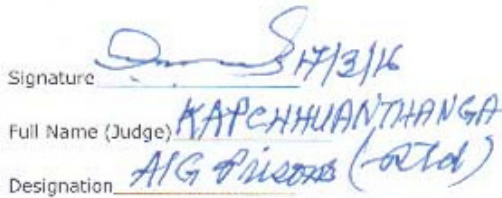 Signature 17/3/16
Full Name (Judge) KAPCHHUANTHANGA
Designation AIG Prisons (Rtd)